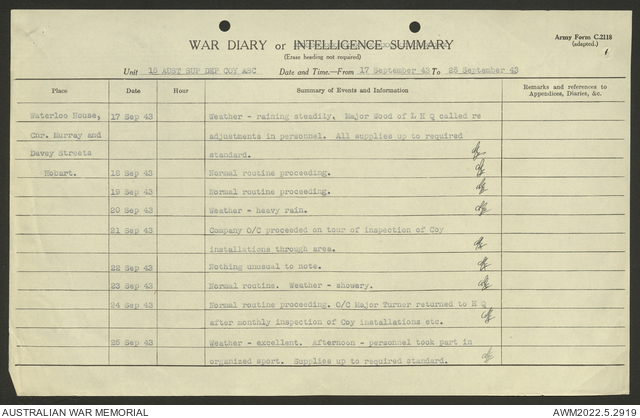 Army Form C.2118
(adapted.)
WAR DIARY or INTELLIGENCE SUMMARY
(Erase heading not required)
Unit 15 AUST SUP DEP COY ASC Date and Time.—From 17 September 43 To 25 September 43
Place Date Hour Summary of Events and Information Remarks and references to
Appendices, Diaries, &c.
Waterloo House, 17 Sep 43 Weather - raining steadily, Major Wood of L H Q called re
Cnr. Murray and adjustments in personnel. All supplies up to required
Davey Streets standard.
Hobart. 18 Sep 43 Normal routine proceeding.
19 Sep 43 Normal routine proceeding.
20 Sep 43 Weather - heavy rain.
21 Sep 43 Company O/C proceeded on tour of inspection of Coy
installations through area.
22 Sep 43 Nothing unusual to note.
23 Sep 43 Normal routine. Weather - showery.
24 Sep 43 Normal routine proceeding. O/C Major Turner returned to H Q
after monthly inspection of Coy installations etc.
25 Sep 43 Weather - excellent. Afternoon - personnel took part in
organised sport. Supplies up to required standard.
AUSTRALIAN WAR MEMORIAL AWM2022.5.2919